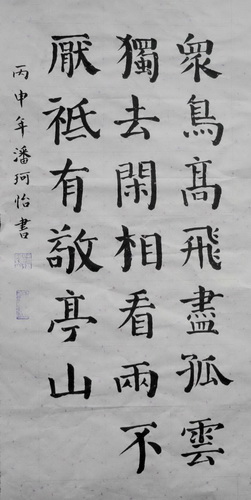 衆鳥髙飛盡孤雲
獨去閑相看兩不
厭祗有敬亭山
丙申年潘珂怡書